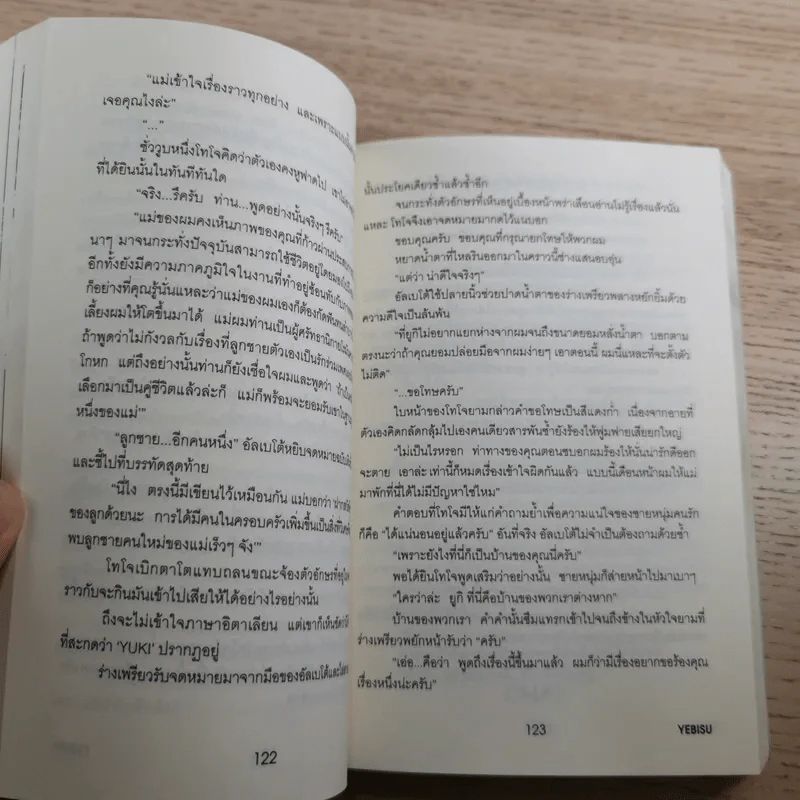 “แม่เข้าใจเรื่องราวทุกอย่าง และเพราะแบบนั้น
เจอคุณไงล่ะ”
“...”
ชั่ววูบหนึ่งโทโจคิดว่าตัวเองคงหูฟาดไป เขาไม่
ที่ได้ยินนั้นในทันทีทันใด
“จริง...รึครับ ท่าน...พูดอย่างนั้นจริงๆ รึครับ”
“แม่ของผมคงเห็นภาพของคุณที่ก้าวผ่านประสบการ
นาๆ มาจนกระทั่งปัจจุบันสามารถใช้ชีวิตอยู่โดยมอง
อีกทั้งยังมีความภาคภูมิใจในงานที่ทำอยู่ซ้อนทับกับภาพ
ก็อย่างที่คุณรู้นั่นแหละว่าแม่ของผมเองก็ต้องกัดฟันทน
เลี้ยงผมให้โตขึ้นมาได้ แม่ผมท่านเป็นผู้ศรัทธานิกาย
ถ้าพูดว่าไม่กังวลกับเรื่องที่ลูกชายตัวเองเป็นรักร่วมเพศ
โกหก แต่ถึงอย่างนั้นท่านก็ยังเชื่อใจผมและพูดว่า
เลือกมาเป็นคู่ชีวิตแล้วล่ะก็ แม่ก็พร้อมจะยอมรับเขาใน
หนึ่งของแม่’”
“ลูกชาย...อีกคนหนึ่ง” อัลเบโต้หยิบจดหมาย
และชี้ไปที่บรรทัดสุดท้าย
“นี่ไง ตรงนี้มีเขียนไว้เหมือนกัน แม่บอกว่า
ของลูกด้วยนะ การได้มีคนในครอบครัวเพิ่มขึ้นเป็นสิ่งที่
พบลูกชายคนใหม่ของแม่เร็วๆ จัง’”
โทโจเบิกตาโตแทบถลนขณะจ้องตัวอักษรที่อยู่
ราวกับจะกินมันเข้าไปเสียให้ได้อย่างไรอย่างนั้น
ถึงจะไม่เข้าใจภาษาอิตาเลียน แต่เขาก็เห็นชัด
ที่สะกดว่า ‘YUKI’ ปรากฏอยู่
ร่างเพรียวรับจดหมายมาจากมือของอัลเบโต้และ
122
นั้นประโยคเดียวซ้ำแล้วซ้ำอีก
จนกระทั่งตัวอักษรที่เห็นอยู่เบื้องหน้าพร่าเลือนอ่านไม่รู้เรื่องแล้วนั่น
แหละ โทโจจึงเอาจดหมายมากดไว้แนบอก
ขอบคุณครับ ขอบคุณที่กรุณายกโทษให้พวกผม
หยาดน้ำตาที่ไหลรินออกมาในคราวนี้ช่างแสนอบอุ่น
“แต่ว่า น่าดีใจจริงๆ”
อัลเบโต้ใช้ปลายนิ้วช่วยปาดน้ำตาของร่างเพรียวพลางหยักยิ้มด้วย
ความดีใจเป็นล้นพ้น
“ที่ยูกิไม่อยากแยกห่างจากผมจนถึงขนาดยอมหลั่งน้ำตา บอกตาม
ตรงนะว่าถ้าคุณยอมปล่อยมือจากผมง่ายๆ เอาตอนนี้ ผมนี่แหละที่จะตั้งตัว
ไม่ติด”
“...ขอโทษครับ”
ใบหน้าของโทโจยามกล่าวคำขอโทษเป็นสีแดงก่ำ เนื่องจากอายที่
ตัวเองคิดกลัดกลุ้มไปเองคนเดียวสารพันซ้ำยังร้องให้ฟูมฟายเสียยกใหญ่
“ไม่เป็นไรหรอก ท่าทางของคุณตอนซบอกผมร้องไห้นั่นน่ารักดีออก
จะตาย เอาล่ะ เท่านี้ก็หมดเรื่องเข้าใจผิดกันแล้ว แบบนี้เดือนหน้าผมให้แม่
มาพักที่นี่ได้ไม่มีปัญหาใช่ไหม”
คำตอบที่โทโจมีให้แก่คำถามย้ำเพื่อความแน่ใจของชายหนุ่มคนรัก
ก็คือ “ได้แน่นอนอยู่แล้วครับ” อันที่จริง อัลเบโต้ไม่จำเป็นต้องถามด้วยซ้ำ
“เพราะยังไงที่นี่ก็เป็นบ้านของคุณนี่ครับ”
พอได้ยินโทโจพูดเสริมว่าอย่างนั้น ชายหนุ่มก็ส่ายหน้าไปมาเบาๆ
“ใครว่าล่ะ ยูกิ ที่นี่คือบ้านของพวกเราต่างหาก”
บ้านของพวกเรา คำคำนั้นซึมแทรกเข้าไปจนถึงข้างในหัวใจยามที่
ร่างเพรียวพยักหน้ารับว่า “ครับ”
“เอ่อ...คือว่า พูดถึงเรื่องนี้ขึ้นมาแล้ว ผมก็ว่ามีเรื่องอยากขอร้องคุณ
เรื่องหนึ่งน่ะครับ”
123
YEBISU